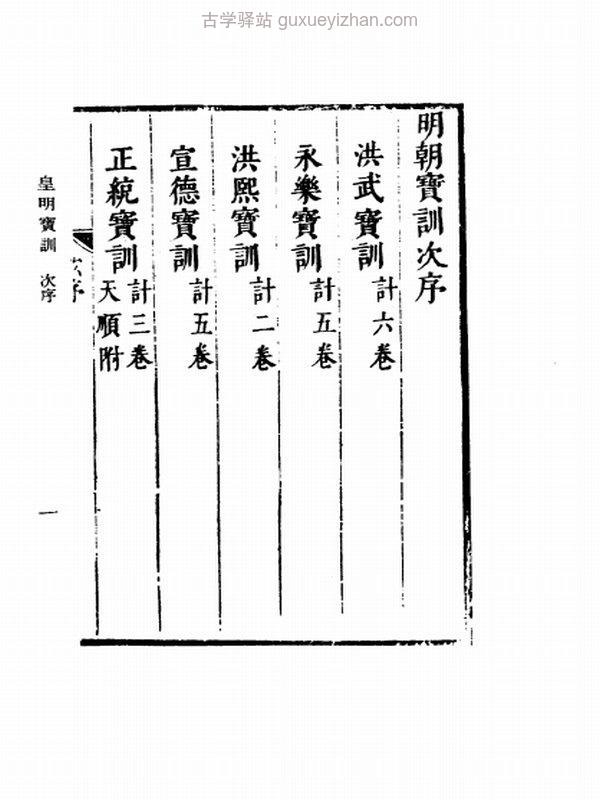 古学驿站 guxueyizhan.com
明朝寶訓次序
洪武寶訓計六卷
永樂寶訓計五卷
洪熙寶訓計二卷
宣德寶訓計五卷
正統寶訓計三卷
天順附
序
皇明寶訓 次序
一